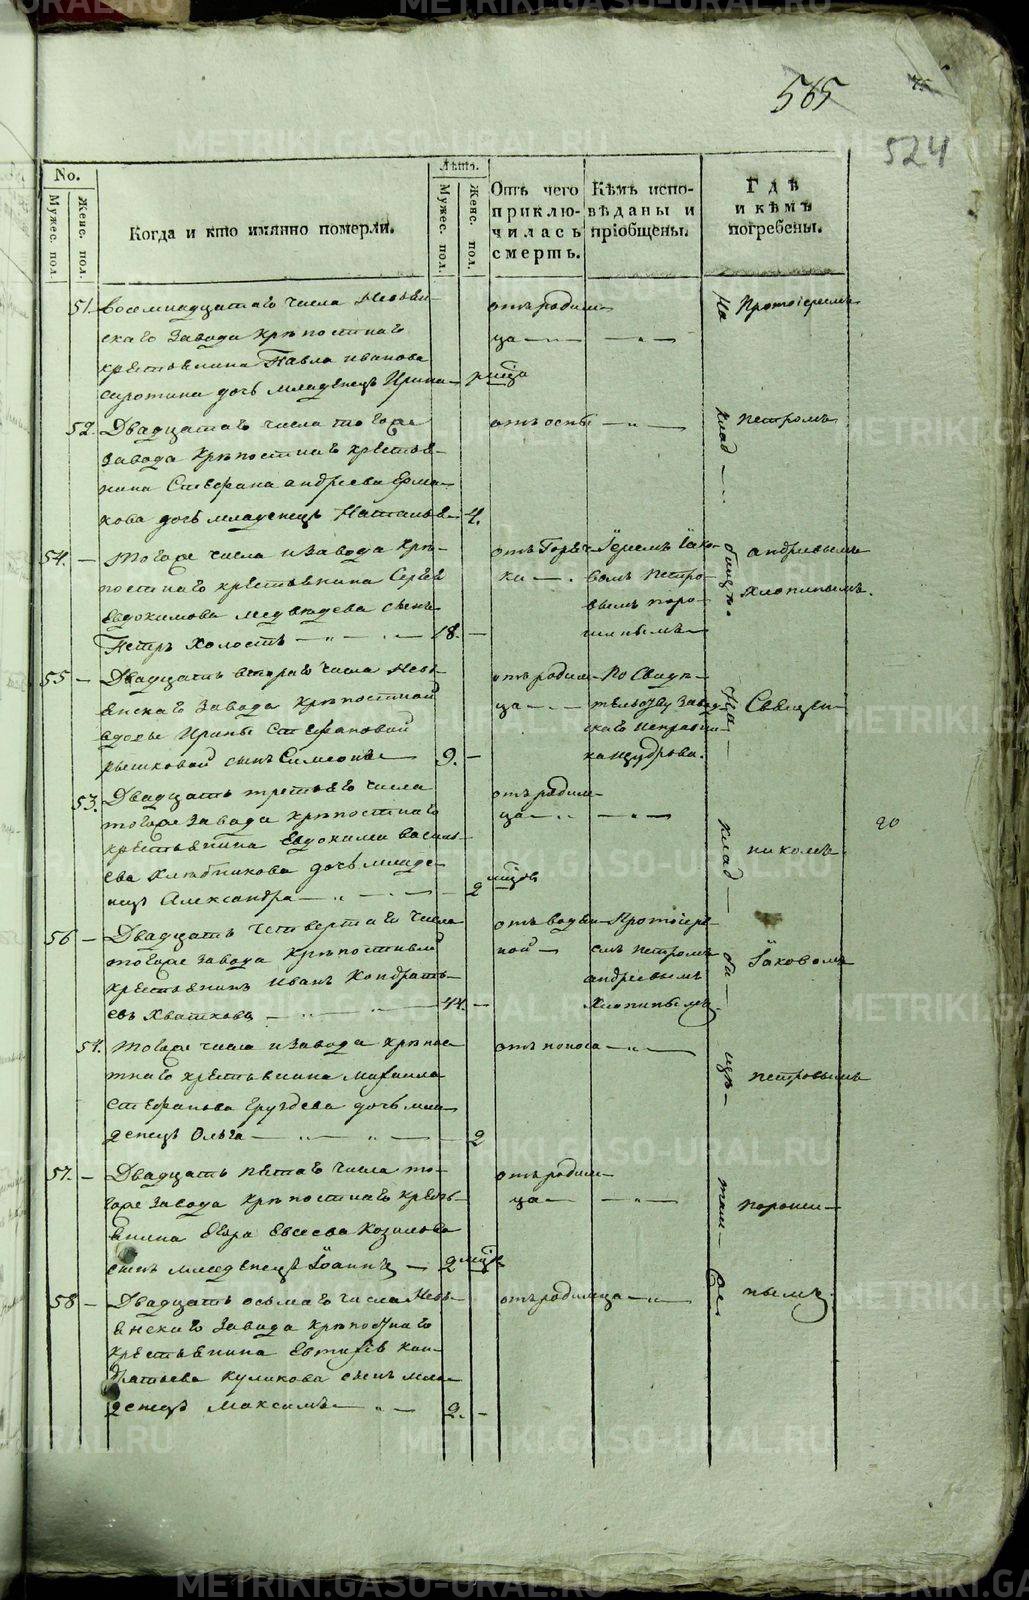 565
524
No.
Мужес. пол.
Женс. пол.
Когда и кто имянно померли.
Лѣта.
Мужес. пол.
Женс. пол.
Отъ чего приклю-чилась смерть.
Кѣмъ испо-вѣданы и прiобщены.
Гдѣ и кѣмъ погребены.
51. Восемнадцатаго числа Невьян-
скаго Завода крѣпостнаго
крестьянина Павла Иванова
Сиротина дочь младенецъ Ирина
отъ родим-
ца
52. Двадцатаго числа тогоже
Завода крѣпостнаго крестья-
нина Стефана Андреева Ерма-
кова дочь младенецъ Наталья 4.
отъ оспы
54. Тогоже числа и Завода крѣ-
постнаго крестьянина Сергѣя
Евдокимова Медвѣдева сынъ
Петръ холостъ 18.
отъ Горяч-
ки
Iереемъ Iако-
вомъ Петро-
вымъ поро-
шинымъ
55 Двадцать втораго числа Невь-
янскаго Завода крѣпостной
вдовы Ирины Стефановой
сынъ Симеонъ 9.
отъ родим-
ца
По Свидѣ-
тельству Завод-
скаго Исправни-
53. Двадцать третьяго числа
тогоже Завода крѣпостнаго
крестьянина Евдокима Василь-
ева Хлѣбникова дочь младе-
нецъ Александра 2
отъ родим-
ца
56 Двадцать четвертаго числа
тогоже Завода крѣпостный
крестьянинъ Иванъ Кондрать-
евъ Хваткова 44.
отъ водян-
ной
Протоiере-
емъ Петромъ
Андреевымъ
Хлопинымъ.
54. Тогоже числа и Завода крѣпос-
тнаго крестьянина Михаила
Стефанова дочь мла-
денецъ Ольга 2
отъ поноса
57. Двадцать пятаго числа то-
гоже Завода крѣпостнаго кресть-
янина Егора Евсеева Козилова
сынъ младенецъ Iоаннъ 2
отъ родим-
ца
58 Двадцать осьмаго числа Невь-
янскаго Завода крѣпостнаго
крестьянина Евтифея Кон-
дратьева Куликова сынъ мла-
денецъ Максимъ 2.
отъ родимца
На клад-бищѣ.
Протоiереемъ
Петромъ
Андреевымъ
Хлопинымъ.
На клад-би-щѣ-
Священ-
никомъ
Iаковомъ
Петровымъ
Пороши-
нымъ.
20
METRIKI.GASO-URAL.RU